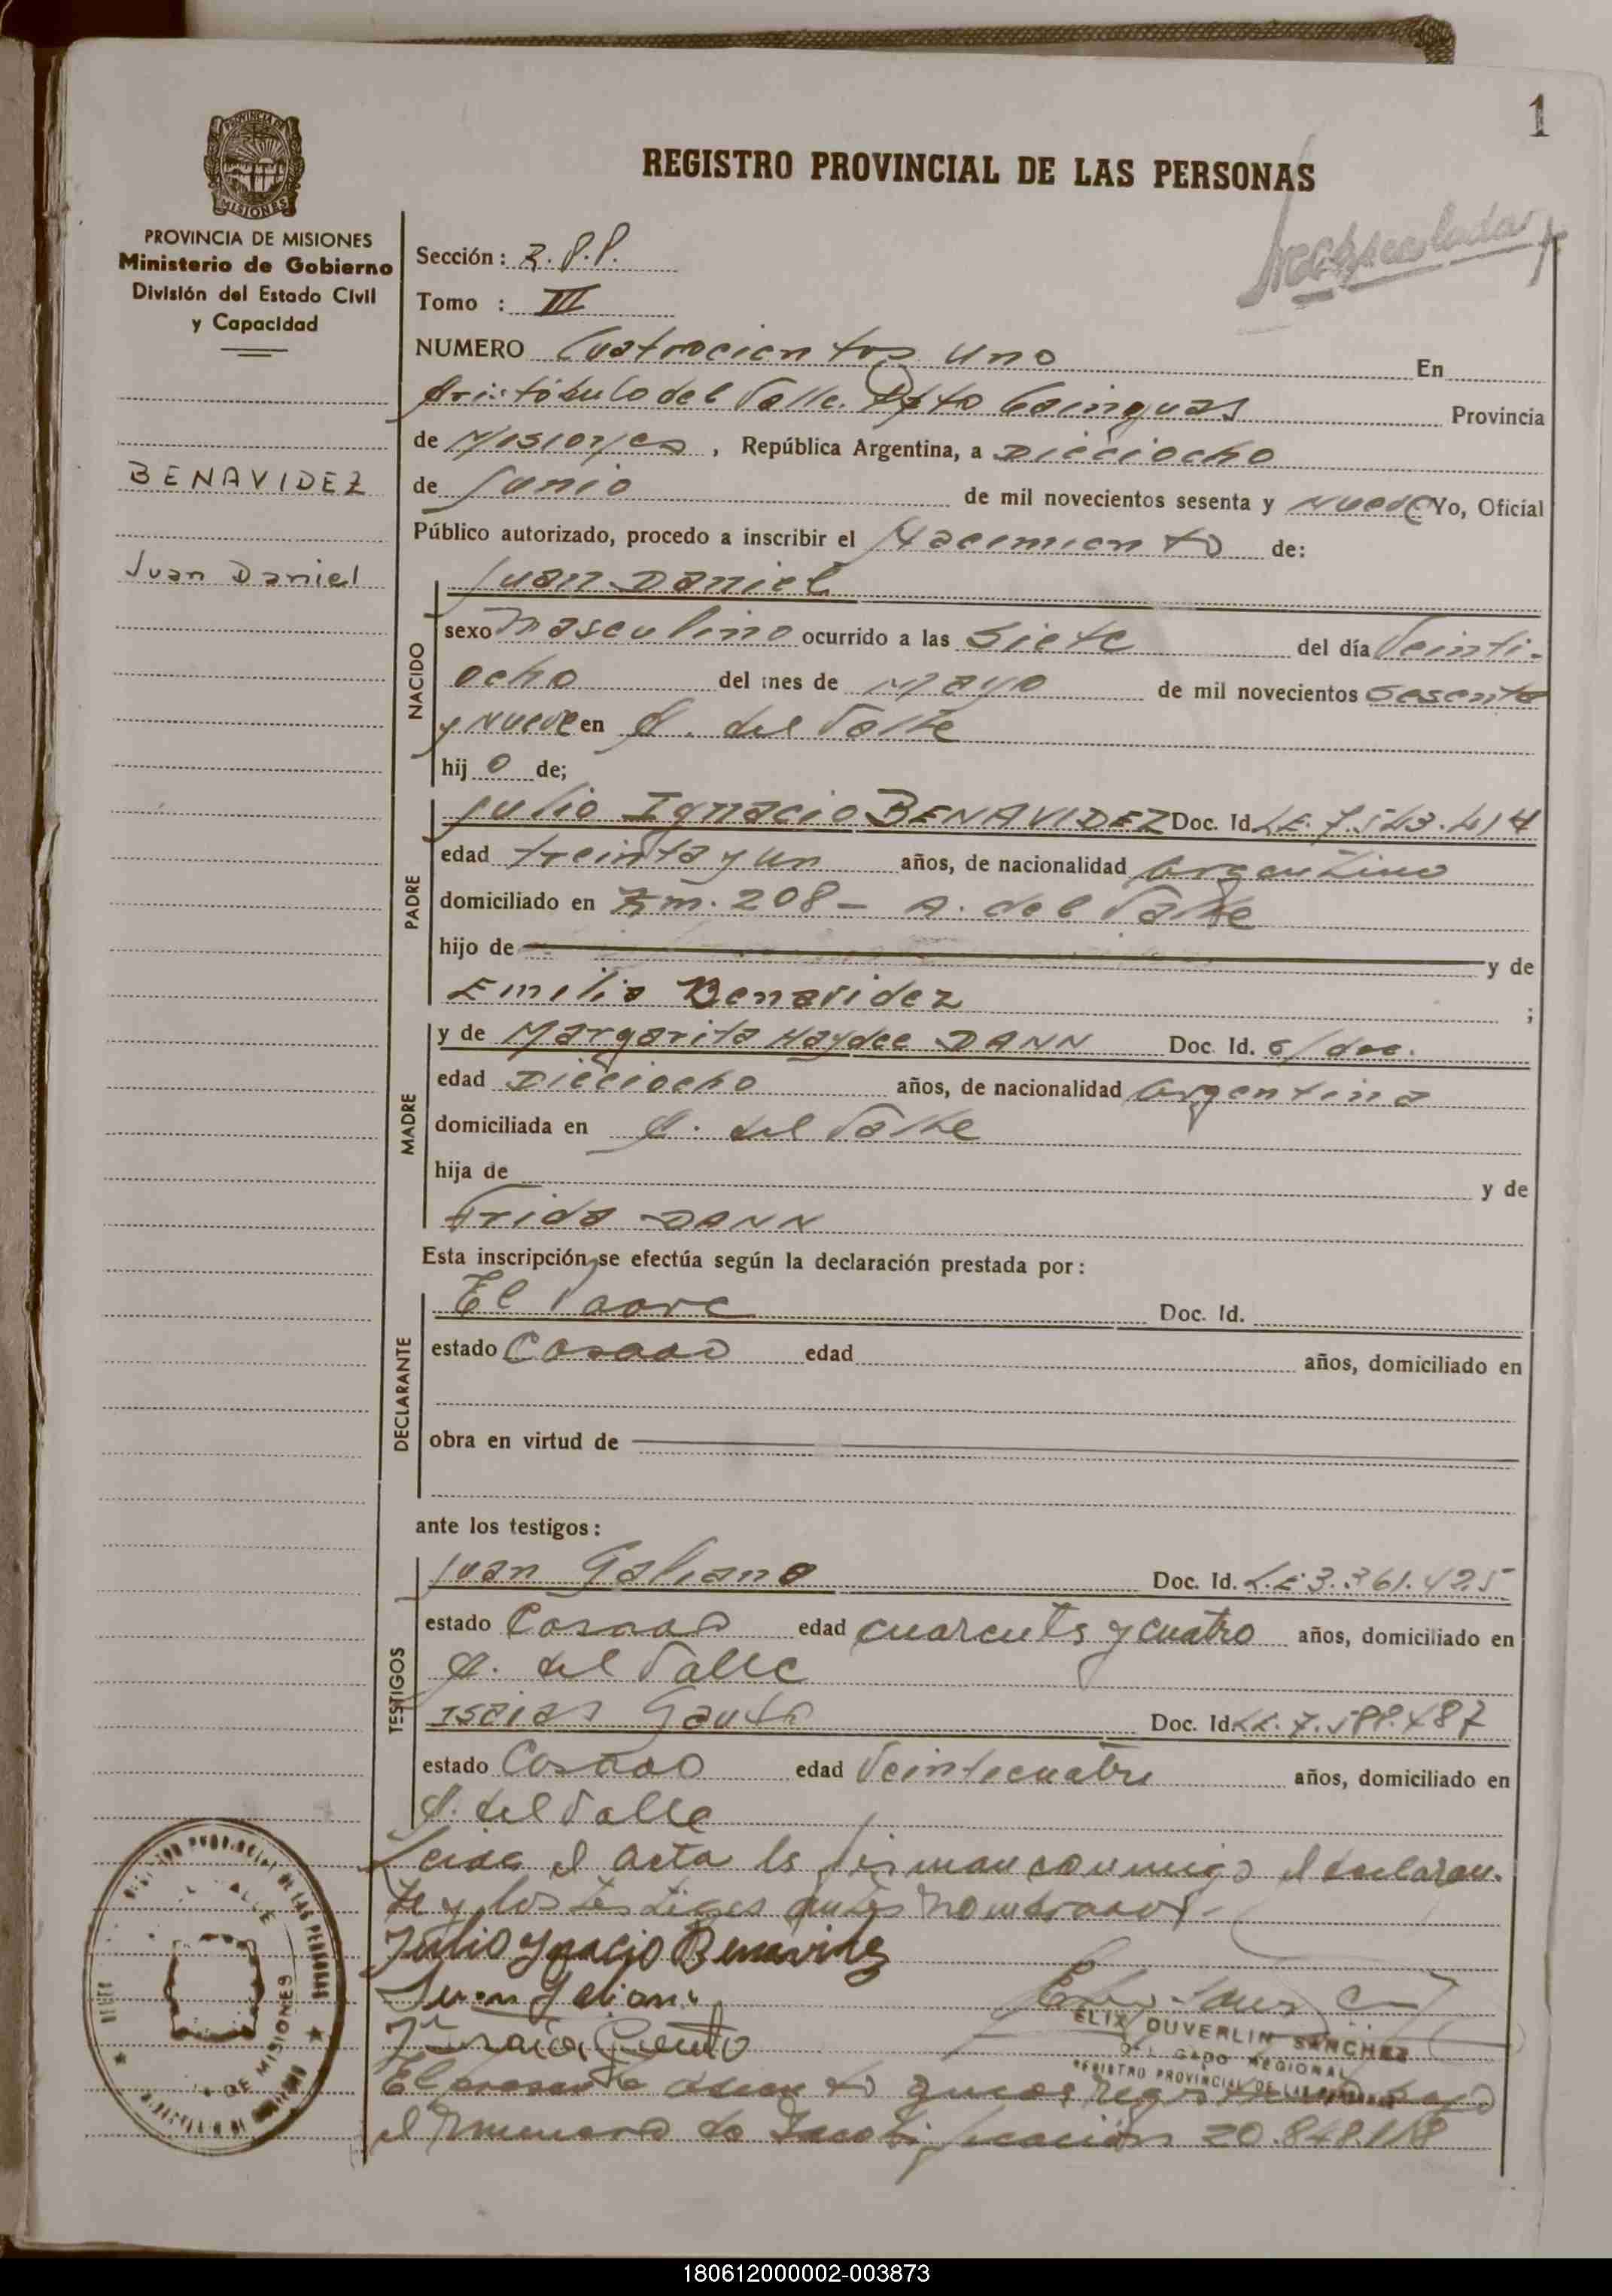 1
PROVINCIA DE
MISIONES
REGISTRO PROVINCIAL DE LAS PERSONAS
PROVINCIA DE MISIONES
Ministerio de Gobierno
División del Estado Civil
y Capacidad
BENAVIDEZ
Juan Daniel
Sección: R.P.P.
Tomo : III
NUMERO Cuatrocientos uno En
Aristóbulo del Valle. Dpto Cainguas Provincia
de Misiones, República Argentina, a Dieciocho
de Junio de mil novecientos sesenta y Nueve Yo, Oficial
Público autorizado, procedo a inscribir el Nacimiento de:
NACIDO
Juan Daniel
sexo Masculino ocurrido a las Siete del día Veinti-
ocho del mes de Mayo de mil novecientos Sesenta
y Nueve en A. del Valle
hij o de;
PADRE
Julio Ignacio BENAVIDEZ Doc. Id LE. 7.543.414
edad treinta y un años, de nacionalidad argentino
domiciliado en Km. 208 - A. del Valle
hijo de y de
Emilia Benavidez ;
MADRE
y de Margarita Haydee DANN Doc. Id. s/doc.
edad Dieciocho años, de nacionalidad argentina
domiciliada en A. del Valle
hija de y de
Frida DANN
Esta inscripción se efectúa según la declaración prestada por:
DECLARANTE
El Padre Doc. Id.
estado Casado edad años, domiciliado en
obra en virtud de
ante los testigos:
TESTIGOS
Juan Galiano Doc. Id. L.E 3.361.425
estado Casado edad cuarenta y cuatro años, domiciliado en
A. del Valle
Isaias Gauto Doc. Id L.E. 7.588.487
estado Casado edad Veinticuatro años, domiciliado en
A. del Valle
Leida el acta la firman conmigo el declaran-
te y los testigos antes nombrados.-
Julio Ygnacio Benavidez
Juan Galiano
ELIX DUVERLIN SANCHEZ
DELEGADO REGIONAL
REGISTRO PROVINCIAL DE LAS PERSONAS
El presente asiento queda registrado bajo
el numero de 20.848.118
DE MISIONES
180612000002-003873